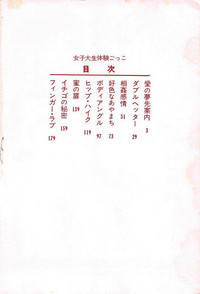 女子大生体験ごっこ
目次
愛の夢先案内 3
ダブルヘッター 29
相姦感情 51
好色なあやまち 73
ボディアングル 97
ヒップ・ハイク 119
蜜の扉 139
イチゴの秘密 159
フィンガー・ラブ 179